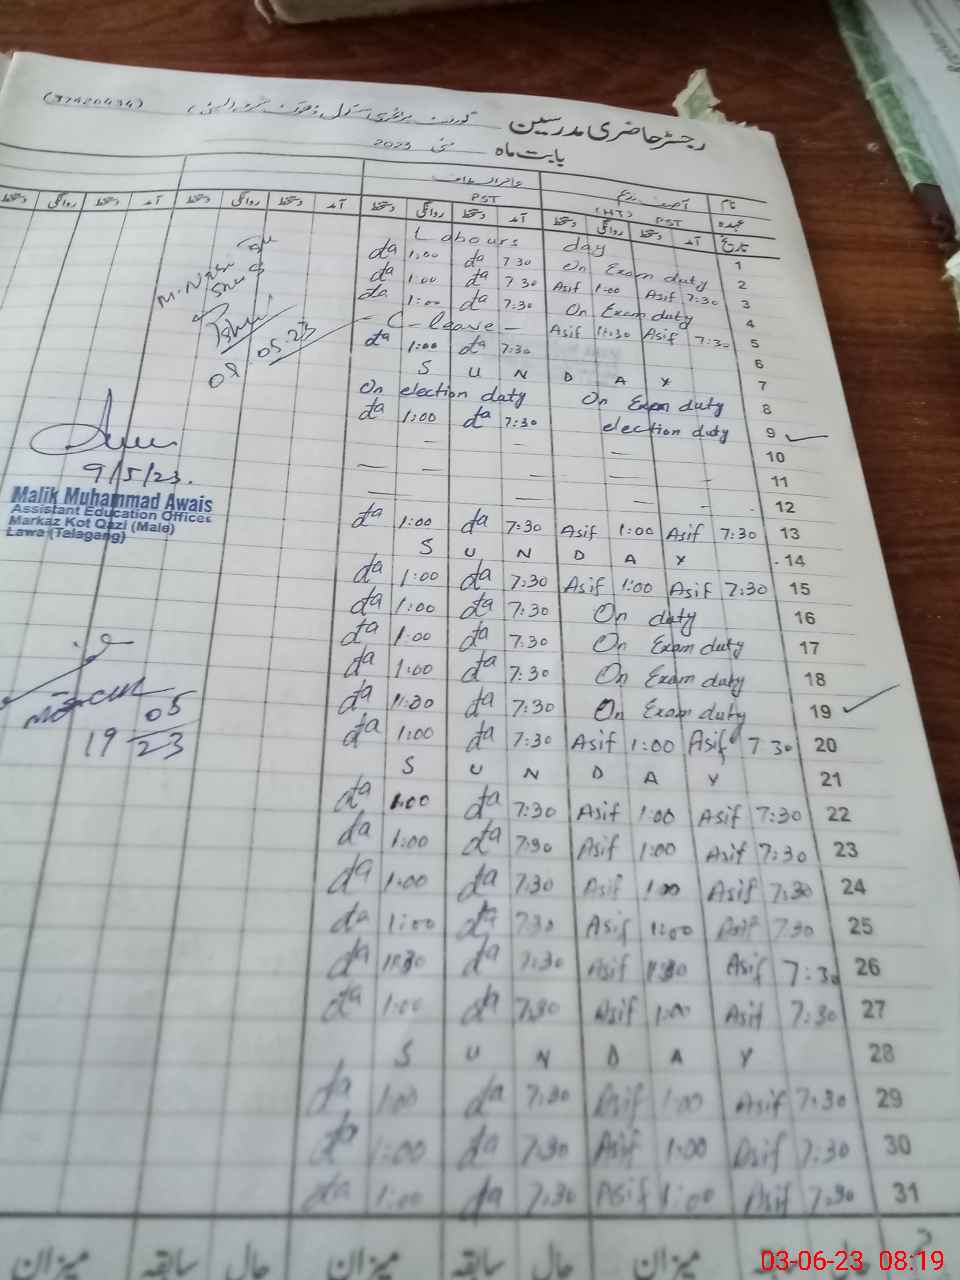 (37420434)
رجسٹر حاضری مدرسین
بابت ماہ مئی 2023
نام
عہدہ PST (HT) PST
تاریخ آمد دستخط روانگی دستخط آمد دستخط روانگی دستخط آمد دستخط روانگی دستخط آمد دستخط روانگی دستخط
Labours day 1
da 1:00 da 7 30 On Exam duty 2
da 1:00 da 7 30 Asif 1:00 Asif 7:30 3
da 1:00 da 7:30 On Exam duty 4
- C - leave - Asif 11:30 Asif 7:30 5
da 1:00 da 7:30 6
S U N D A Y 7
On election duty On Exam duty 8
da 1:00 da 7:30 election duty 9
10
11
12
da 1:00 da 7:30 Asif 1:00 Asif 7:30 13
S U N D A Y 14
da 1:00 da 7:30 Asif 1:00 Asif 7:30 15
da 1:00 da 7:30 On duty 16
da 1:00 da 7:30 On Exam duty 17
da 1:00 da 7:30 On Exam duty 18
da 11:30 da 7:30 On Exam duty 19
da 1:00 da 7:30 Asif 1:00 Asif 7 30 20
S U N D A Y 21
da 1:00 da 7:30 Asif 1:00 Asif 7:30 22
da 1:00 da 7:30 Asif 1:00 Asif 7:30 23
da 1:00 da 7:30 Asif 1:00 Asif 7:30 24
da 1:00 da 7:30 Asif 1:00 Asif 7:30 25
da 11:30 da 7:30 Asif 11:30 Asif 7:30 26
da 1:00 da 7:30 Asif 1:00 Asif 7:30 27
S U N D A Y 28
da 1:00 da 7:30 Asif 1:00 Asif 7:30 29
da 1:00 da 7:30 Asif 1:00 Asif 7:30 30
da 1:00 da 7:30 Asif 1:00 Asif 7:30 31
میزان حال سابقہ میزان حال سابقہ میزان
08.05.23
9/5/23.
Malik Muhammad Awais
Assistant Education Officer
Markaz Kot Qazi (Male)
Lawa (Talagang)
19 05
23
03-06-23 08:19